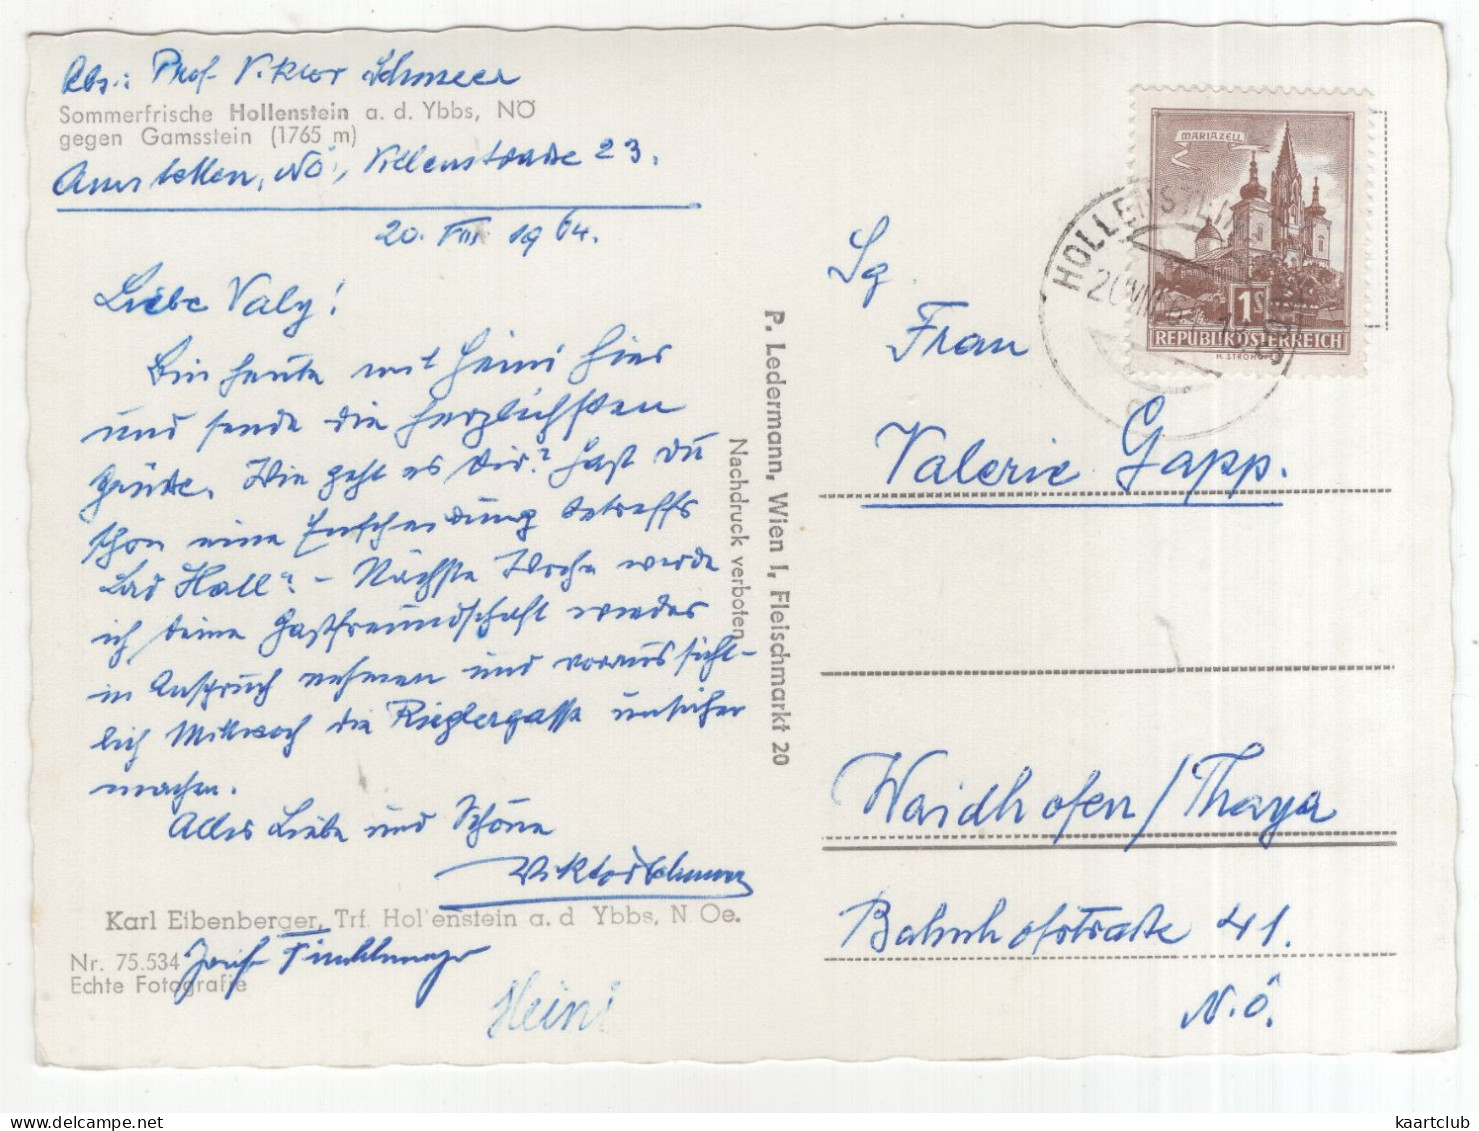 Abs.: Prof. Viktor Schmeer
Sommerfrische Hollenstein a. d. Ybbs, NÖ
gegen Gamsstein (1765 m)
Amstetten, NÖ, 23.
20. VIII. 1964.
Liebe Valy!
Bin heute mit Heini hier
und sende die herzlichsten
Grüße. Wie geht es Dir? Hast Du
schon eine Entscheidung betreffs
Bad Hall? – Nächste Woche werde
ich Deine Gastfreundschaft wieder
in Anspruch nehmen und voraussicht-
lich Mittwoch die Rieglergasse unsicher
machen.
Alles Liebe und Schöne
Viktor Schmeer
Karl Eibenberger, Trf. Hol'enstein a. d Ybbs, N Oe.
Nr. 75.534
Echte Fotografie
Josef
Heini
P. Ledermann, Wien I, Fleischmarkt 20
Nachdruck verboten
MARIAZELL
1S
REPUBLIK ÖSTERREICH
HOLLENSTEIN
Sg.
Frau
Valerie Gapp.
Waidhofen/Thaya
Bahnhofstraße 41.
N.Ö.
kaartclub